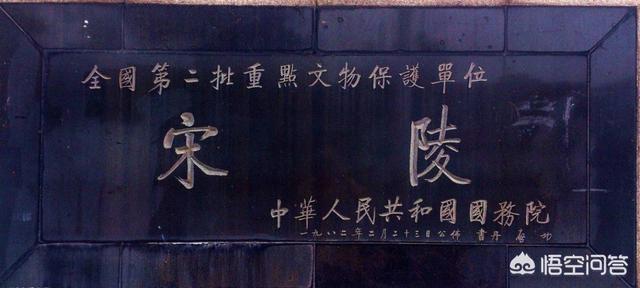 全國第二批重點文物保護單位
宋陵
中華人民共和國國務院
一九八二年二月二十三日公佈 書丹 啓功
悟空问答